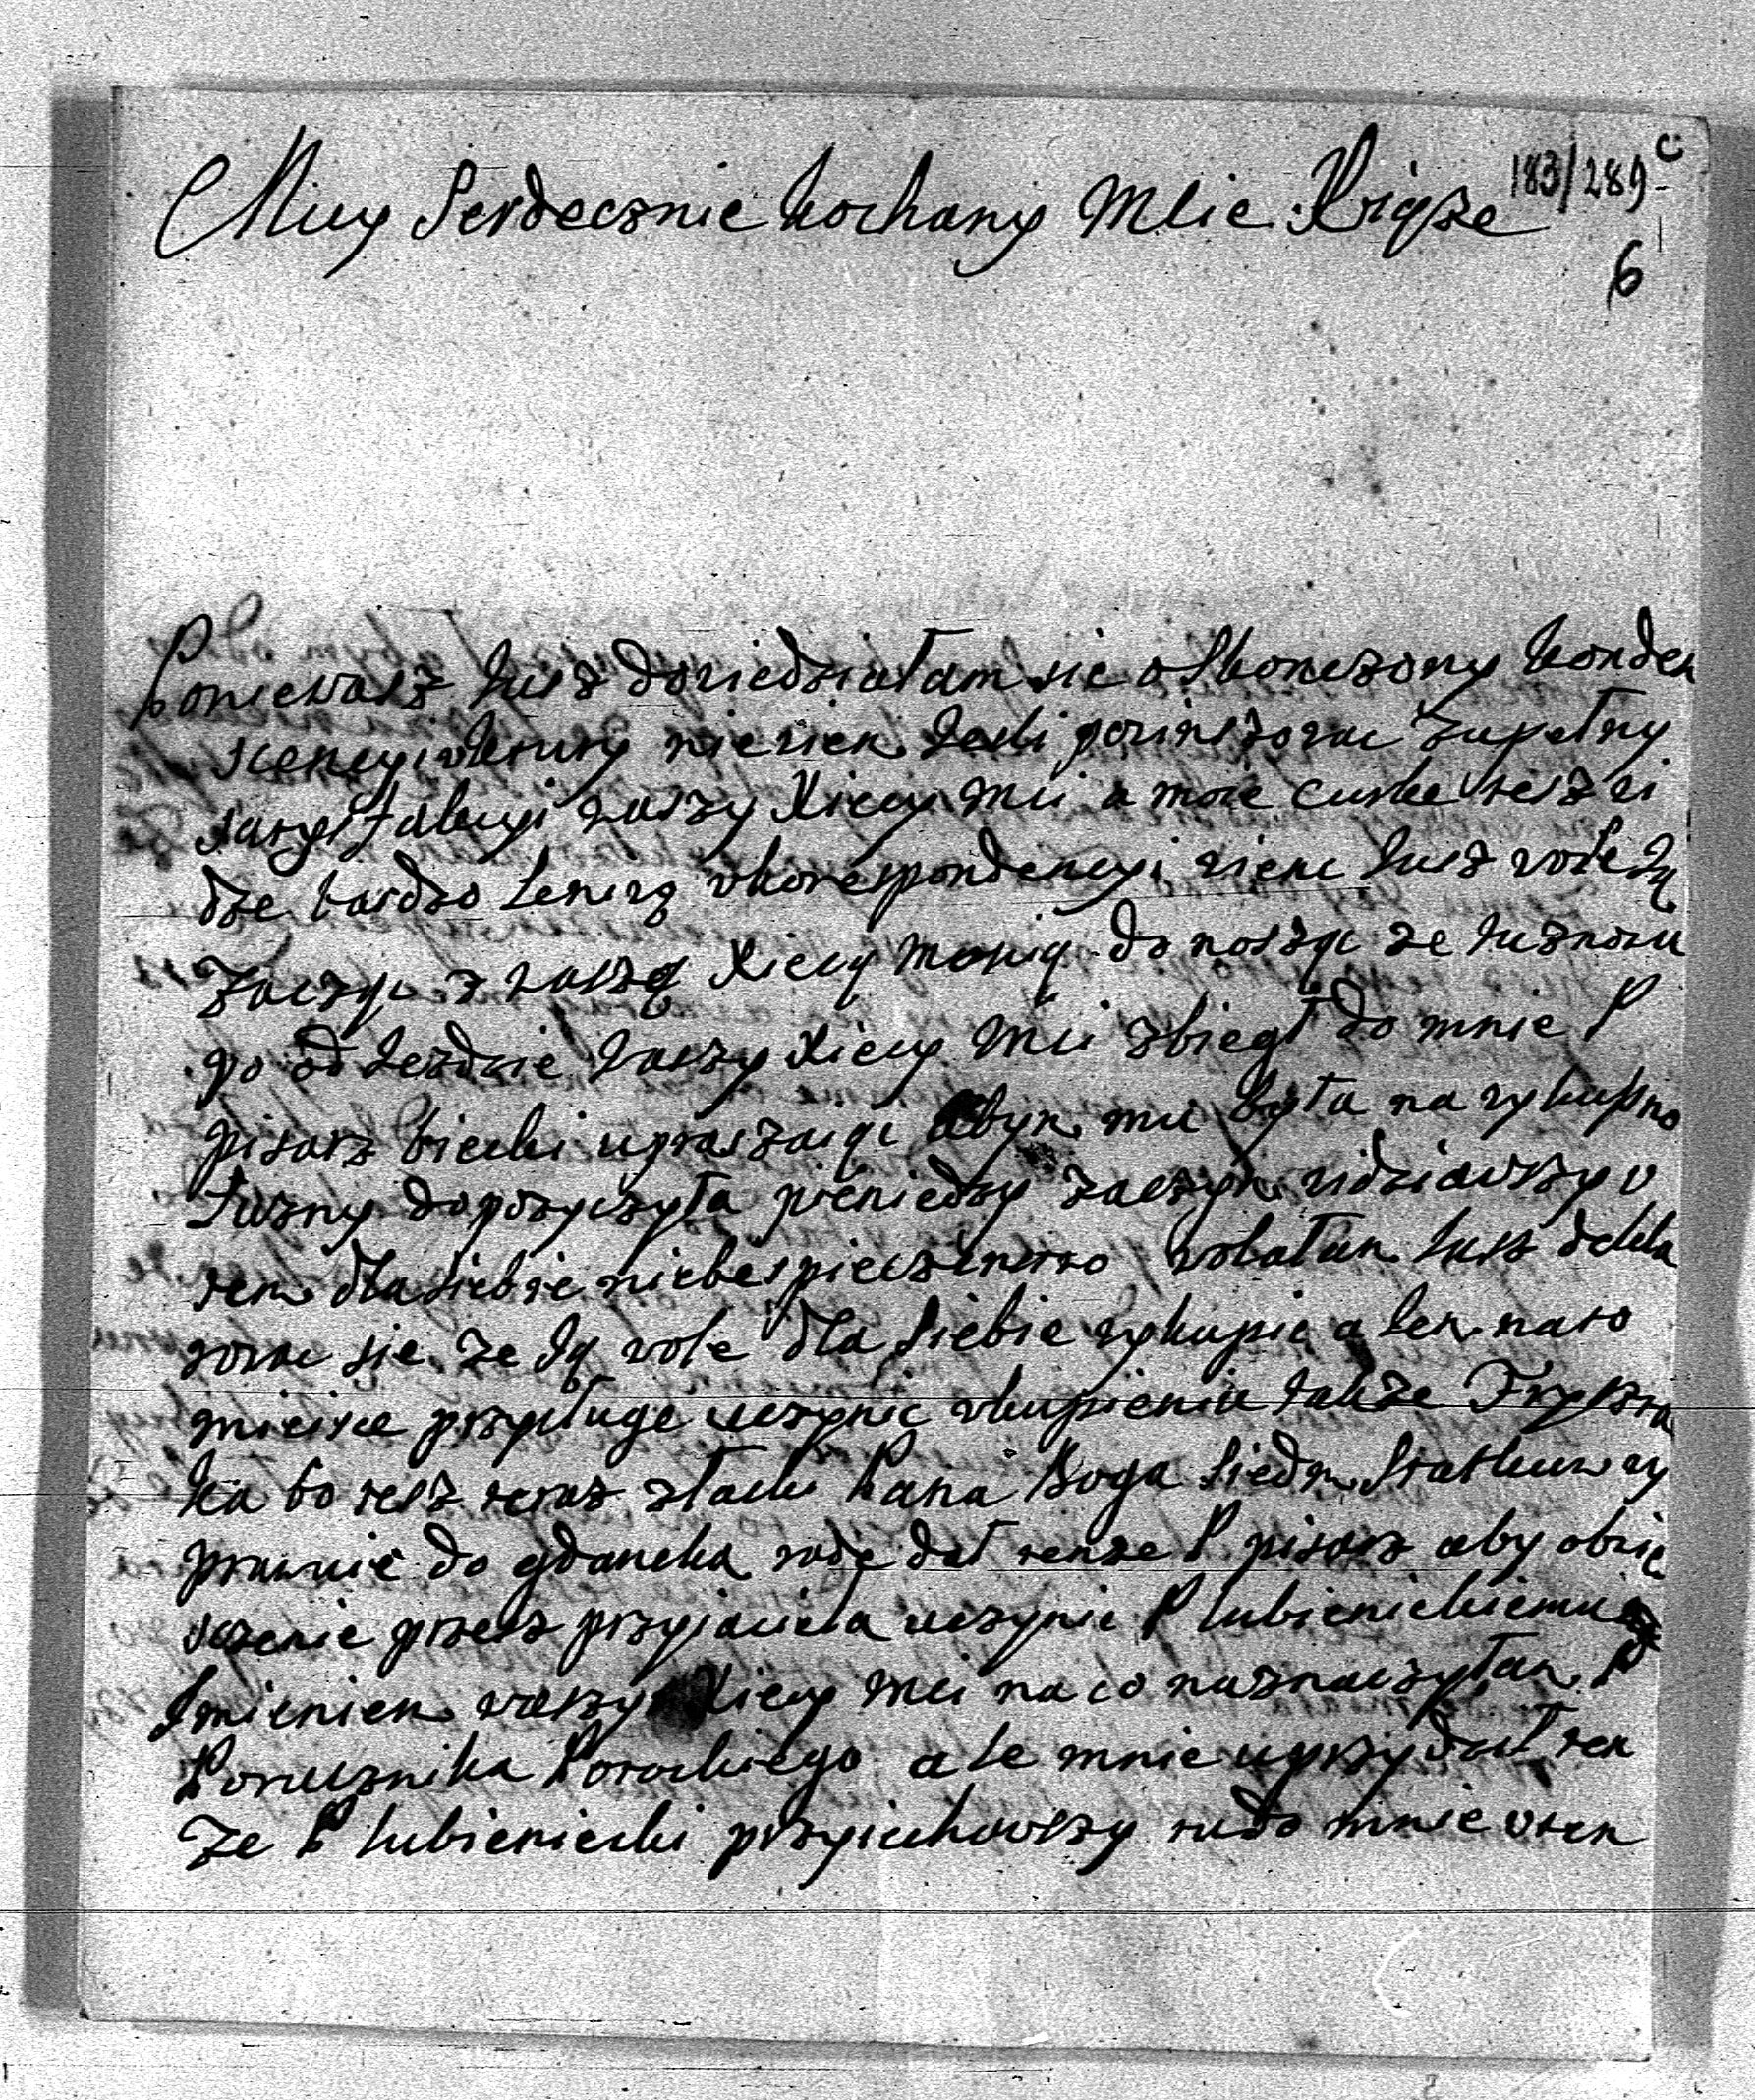 Muy Serdecznie kochany Mcie Xiąże
183/289 c
6
Poniewasz iusz dowiedziałam sie o skonczony konde
scencyi wktury niewiem iesli powinszowac zupełny
satysfakcyi waszy Xiecy Mci a moie curke wi
dze bardzo leniwą wkorespondencyi wienc iusz wole ią
zacząc z waszą Xiecą Moscią donosząc ze
po odiezdzie waszy Xiecy Mci zbiegł do mnie P
pisarz biecki upraszaiąc abym mu była na wykupno
dopozyczyła pieniedzy zaczym widziawszy w
tem dla siebie niebespieczenstwo wolałam iusz dekla
rowac sie ze ią wole dla siebie wykupic a iem na to
mieisce przysługe uczynic wkupieniu także Frysz
ka bo tesz teraz złaski Pana Boga siedm statkuw wy
prawuie do gdanska rade dał tenze P pisarz aby obwie
sczenie przesz przyjaciela uczynic P lubienickiemu
Imieniem waszy Xiecy Mci na co naznaczyłam P
Porucznika ale mnie uprzydził tem
ze P lubieniecki przyiechawszy tu do mnie wtem